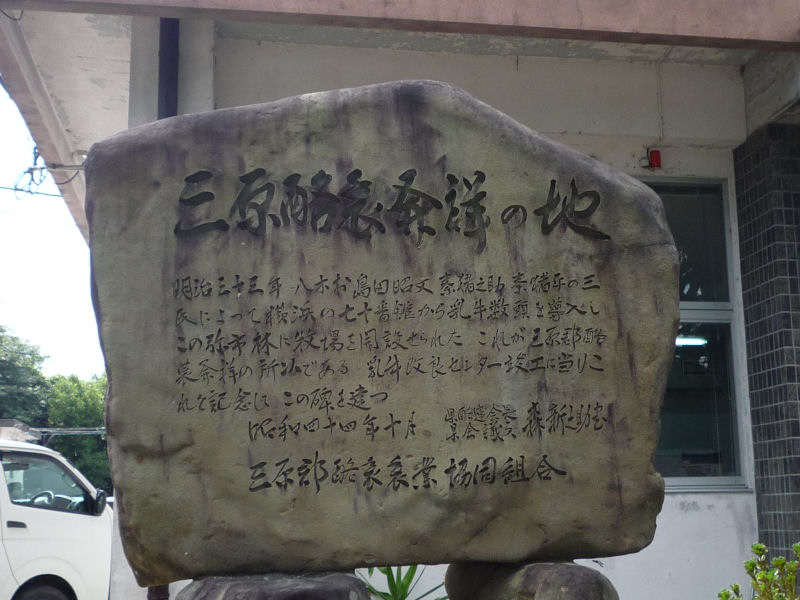 三原酪農発祥の地
明治三十三年 八木村 島田昭文 素猪之助 素猪平の三
氏によって横浜の七十番館から乳牛数頭を導入し
この弥市林に牧場を開設せられた これが三原郡酪
農発祥の所以である 乳牛改良センター竣工に当りこ
れを記念してこの碑を建つ
昭和四十四年十月 県会議員 森新之助書
三原郡酪農農業協同組合